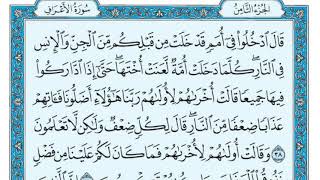 الجزء الثامن
سورة الأعراف
قَالَ ٱدْخُلُوا۟ فِىٓ أُمَمٍ قَدْ خَلَتْ مِن قَبْلِكُم مِّنَ ٱلْجِنِّ وَٱلْإِنسِ
فِى ٱلنَّارِ كُلَّمَا دَخَلَتْ أُمَّةٌ لَّعَنَتْ أُخْتَهَا حَتَّىٰٓ إِذَا ٱدَّارَكُوا۟
فِيهَا جَمِيعًا قَالَتْ أُخْرَىٰهُمْ لِأُولَىٰهُمْ رَبَّنَا هَٰٓؤُلَآءِ أَضَلُّونَا فَـَٔاتِهِمْ
عَذَابًا ضِعْفًا مِّنَ ٱلنَّارِ قَالَ لِكُلٍّ ضِعْفٌ وَلَٰكِن لَّا تَعْلَمُونَ
٣٨ وَقَالَتْ أُولَىٰهُمْ لِأُخْرَىٰهُمْ فَمَا كَانَ لَكُمْ عَلَيْنَا مِن فَضْلٍ